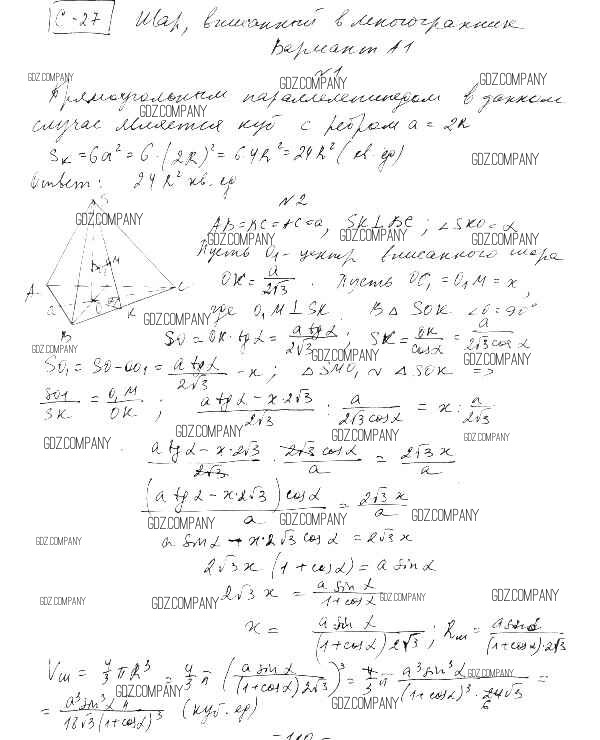 С-27 Шар, вписанный в многогранник
Вариант А1
GDZ.COMPANY GDZ.COMPANY GDZ.COMPANY
№1
Прямоугольным параллелепипедом в данном
GDZ.COMPANY
случае является куб с ребром a = 2R
Sк = 6a² = 6·(2R)² = 6·4R² = 24R² (кв. ед) GDZ.COMPANY
Ответ: 24R² кв. ед
№2
GDZ.COMPANY
AB=BC=AC=a, SK⊥BC; ∠SKO=α
GDZ.COMPANY GDZ.COMPANY GDZ.COMPANY
Пусть O₁ - центр вписанного шара
OK = a/2√3. Пусть OO₁ = O₁M = x,
где O₁M⊥SK. В △SOK ∠O=90°
GDZ.COMPANY
SO = OK·tgα = a tgα/2√3; SK = OK/cosα = a/2√3cosα
GDZ.COMPANY GDZ.COMPANY GDZ.COMPANY
SO₁ = SO-OO₁ = a tgα/2√3 - x; △SMO₁ ~ △SOK =>
SO1/SK = O₁M/OK; a tgα - x2√3/2√3 : a/2√3cosα = x : a/2√3
GDZ.COMPANY GDZ.COMPANY GDZ.COMPANY GDZ.COMPANY
a tgα - x·2√3/2√3 · 2√3cosα/a = 2√3x/a
(a tgα - x·2√3)cosα/a = 2√3x/a
GDZ.COMPANY GDZ.COMPANY GDZ.COMPANY
GDZ.COMPANY a sinα - x·2√3cosα = 2√3x
2√3x (1+cosα) = a sinα
GDZ.COMPANY GDZ.COMPANY 2√3x = a sinα/1+cosα GDZ.COMPANY
x = a sinα/(1+cosα)2√3; Rш = a sinα/(1+cosα)·2√3
Vш = 4/3 πR³ = 4/3 π (a sinα/(1+cosα)2√3)³ = 4/3 π · a³sin³α/(1+cosα)³·24√3 =
GDZ.COMPANY GDZ.COMPANY GDZ.COMPANY
= a³sin³α π/18√3(1+cosα)³ (куб. ед)